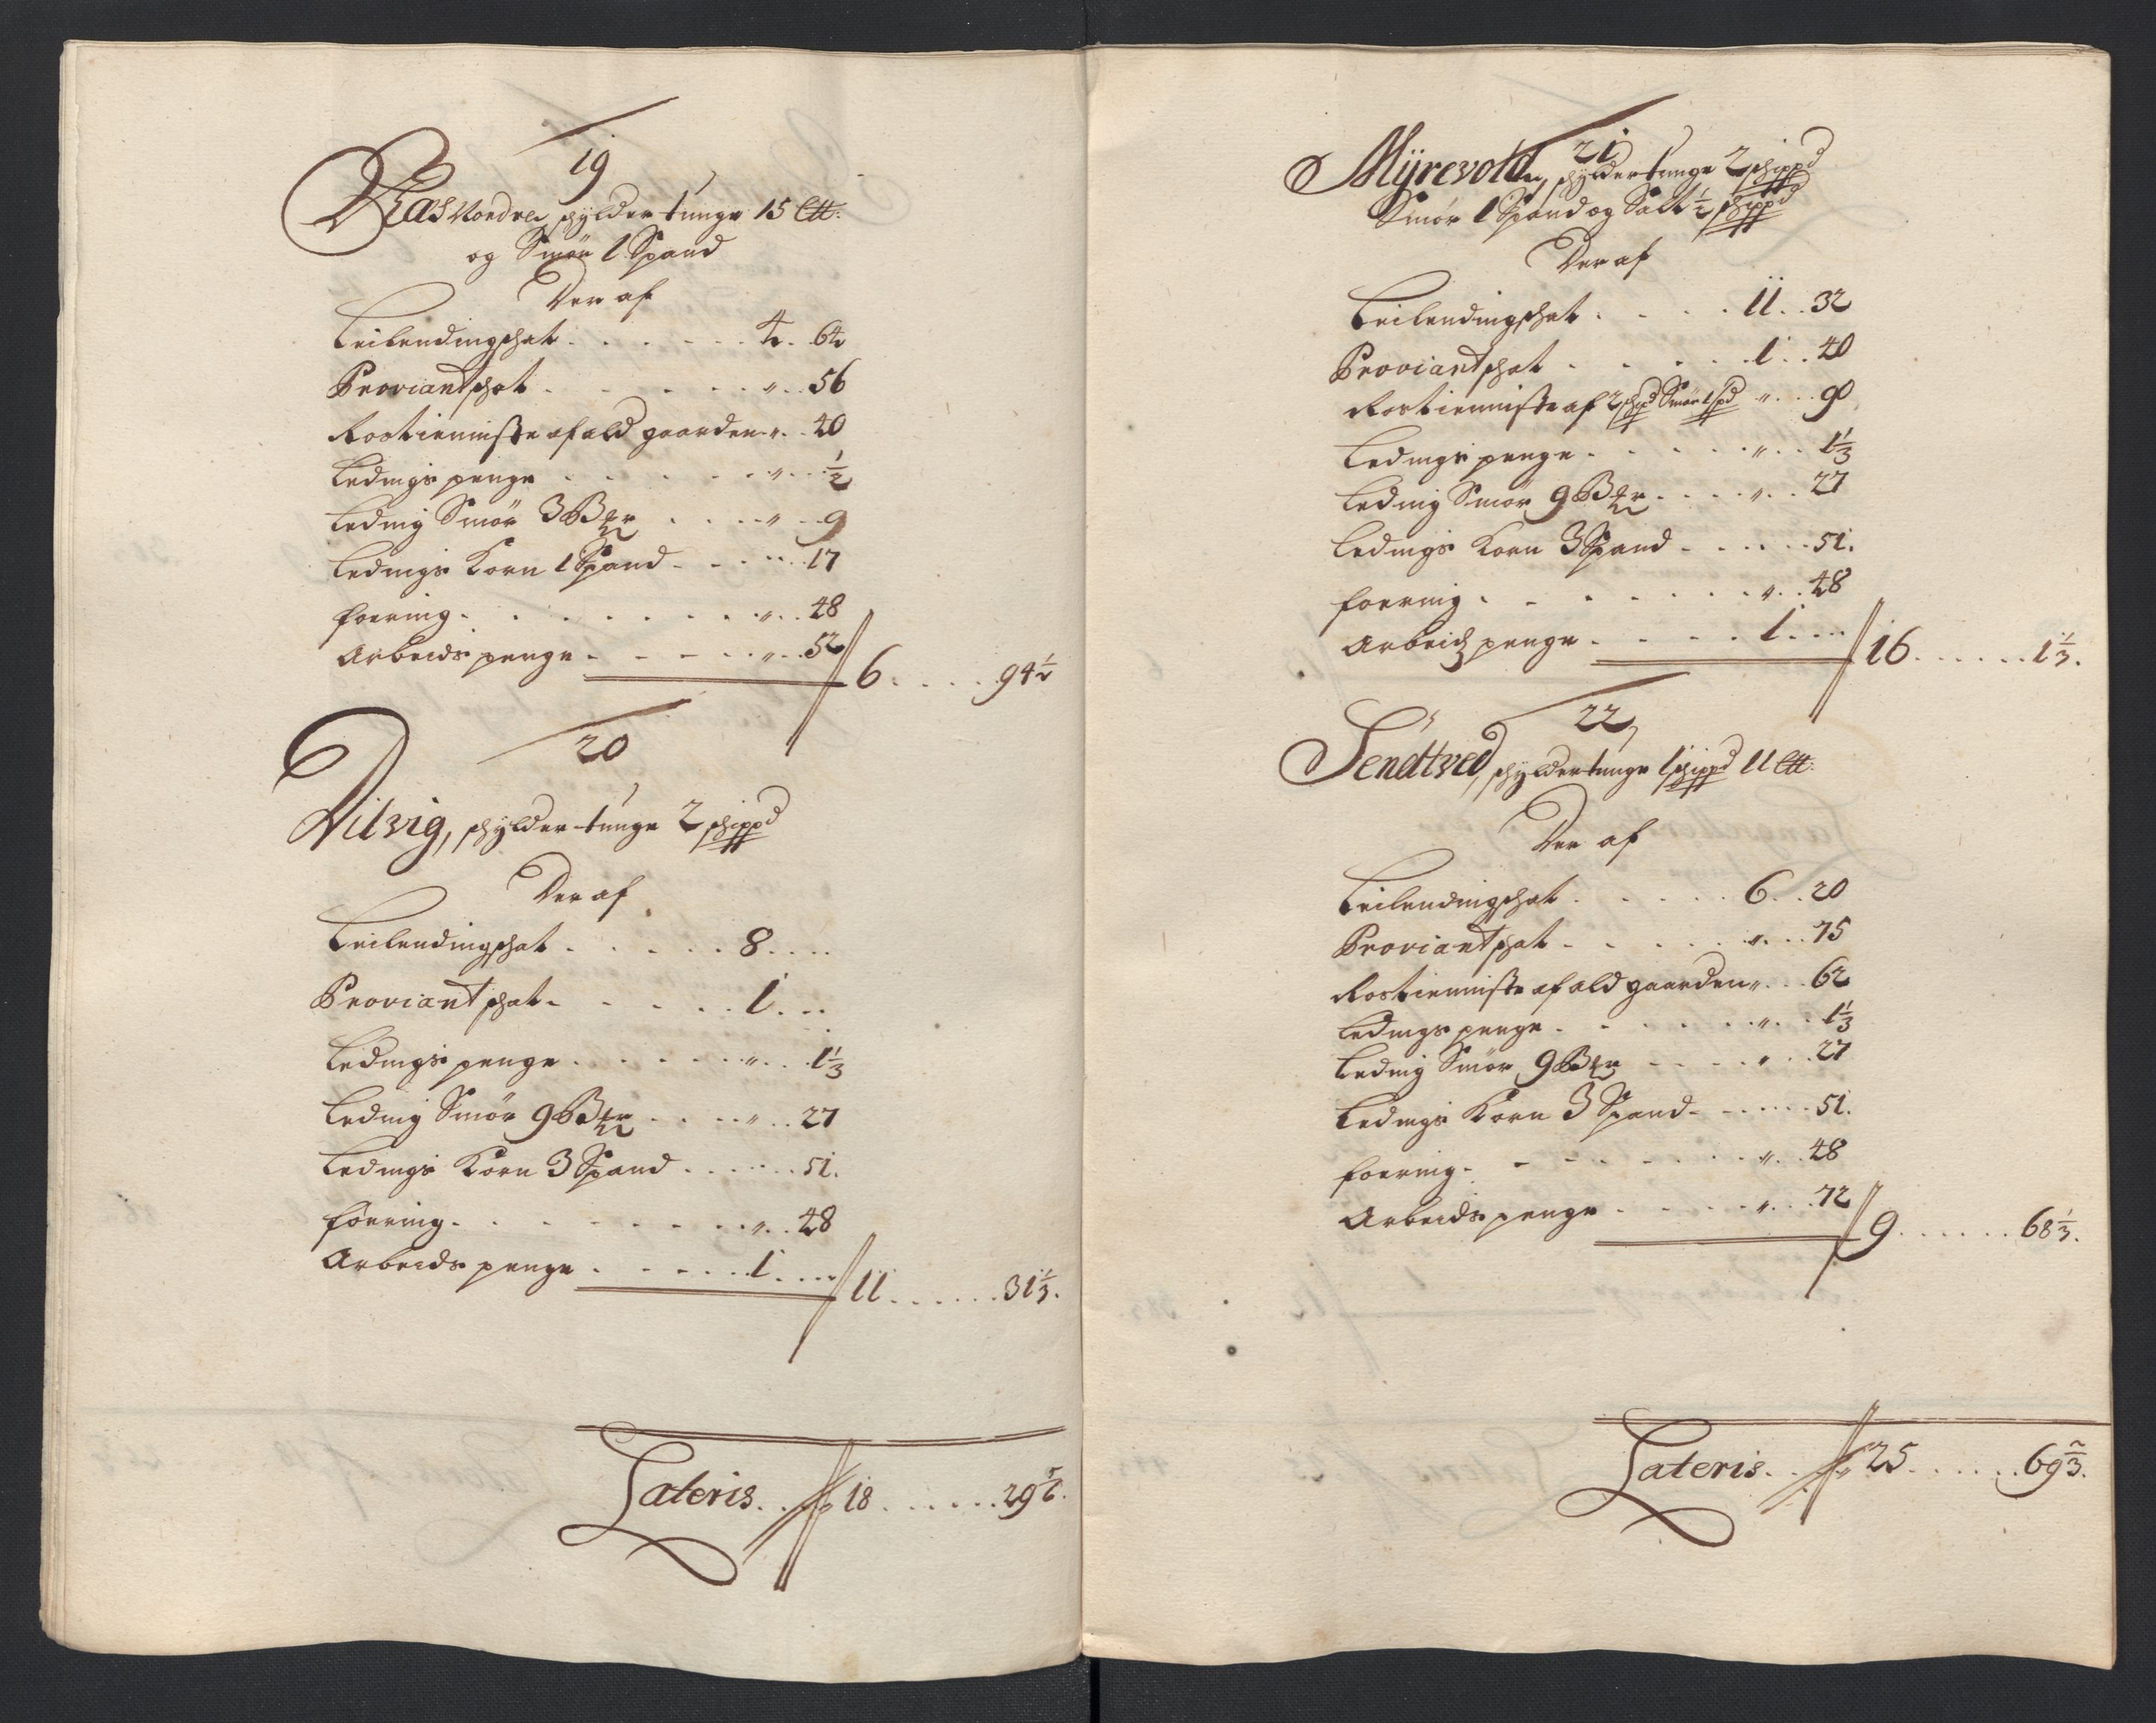 19
Næs Nordre, schylder tunge 15 Ltt:
og Smør 1 Spand
Der af
Leilendingschat . . . . . . 4 . 64
Proviantschat . . . . . . " . . 56
Rostienniste af ald gaarden " . . 40
Ledings penge . . . . . . " . . ½
Leding Smør 3 B . . . . " . . 9
Ledings Korn 1 Spand . . . " . . 17
Foering . . . . . . . " . . 48
Arbeids penge . . . . . " . . 52 // 6 . . . . 94½
20
Vilvig, schylder tunge 2 schippd
Der af
Leilendingschat . . . . . . 8 . . . .
Proviantschat . . . . . . 1 . . .
Ledings penge . . . . . . " . . . 1⅓
Leding Smør 9 B . . . . " . . 27
Ledings Korn 3 Spand . . . . . . 51.
Foering . . . . . . . " . . 48
Arbeids penge . . . . . . 1 . . . . // 11 . . . . . . 31⅓.
Lateris . . // 18 . . . . . . 29⅚.
21
Myrevold, schylder tunge 2 schippd
Smør 1 Spand og Salt ½ schippd
Der af
Leilendingschat . . . . 11 . . 32
Proviantschat . . . . . 1 . . 40
Rostienniste af 2 schpd Smør 1 spd " . . . 90
Ledings penge . . . . . " . . 1⅓
Leding Smør 9 B . . . . " . . 27
Ledings Korn 3 Spand . . . . . 51.
Foering . . . . . . . " . . 48
Arbeids penge . . . . . 1 . . . . // 16 . . . . . . 1⅓.
22
Sendtved, schylder tunge 1 schippd 11 Ltt:
Der af
Leilendingschat . . . . . 6 . . 20
Proviantschat . . . . . . " . . . 75
Rostienniste af ald gaarden " . . . 62
Ledings penge . . . . . . " . . 1⅓
Leding Smør 9 B . . . . " . . 27
Ledings Korn 3 Spand . . . . . 51.
Foering . . . . . . . " . . 48
Arbeids penge . . . . . " . . . 72 // 9 . . . . . . 68⅓.
Lateris . . // 25 . . . . . . 69⅔.